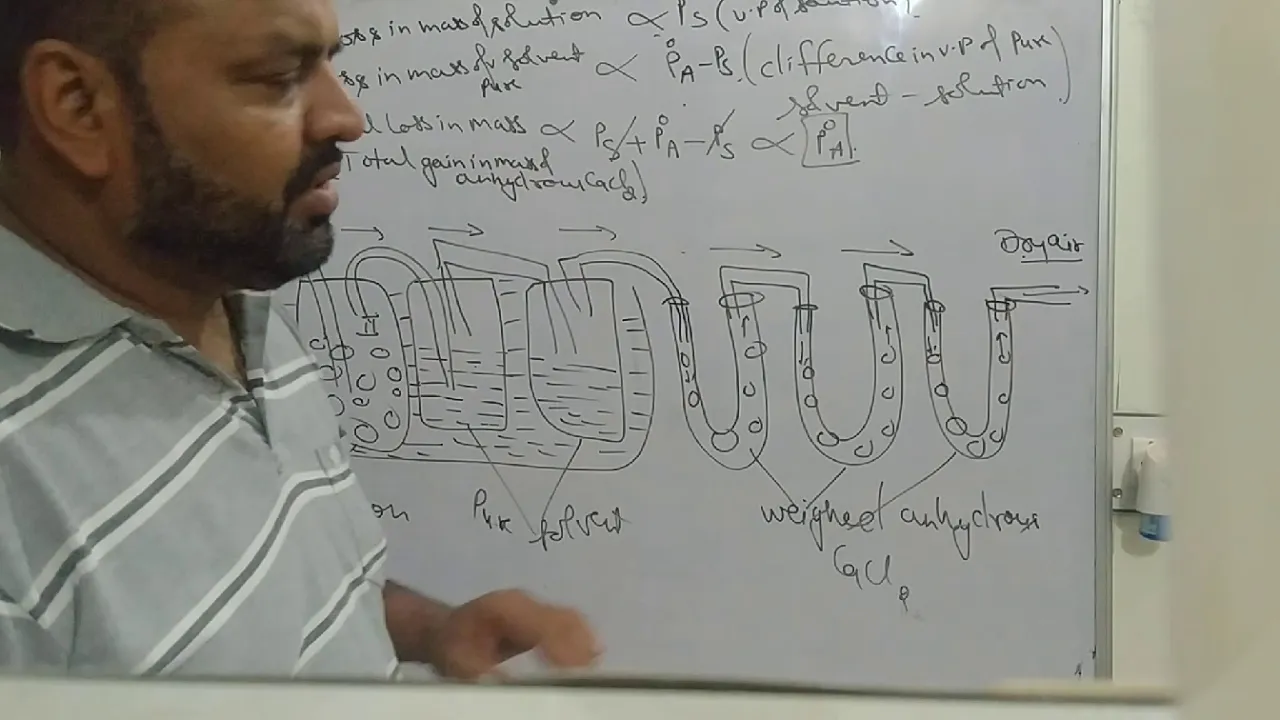 in mass of solution ∝ Ps (v.p of solution).
in mass of solvent ∝ P°A - Ps (difference in v.p of pure
pure
solvent - solution)
loss in mass ∝ Ps + P°A - Ps ∝ P°A.
Total gain in mass of
anhydrous CaCl2)
Dry air
Pure solvent
weighed anhydrous
CaCl2